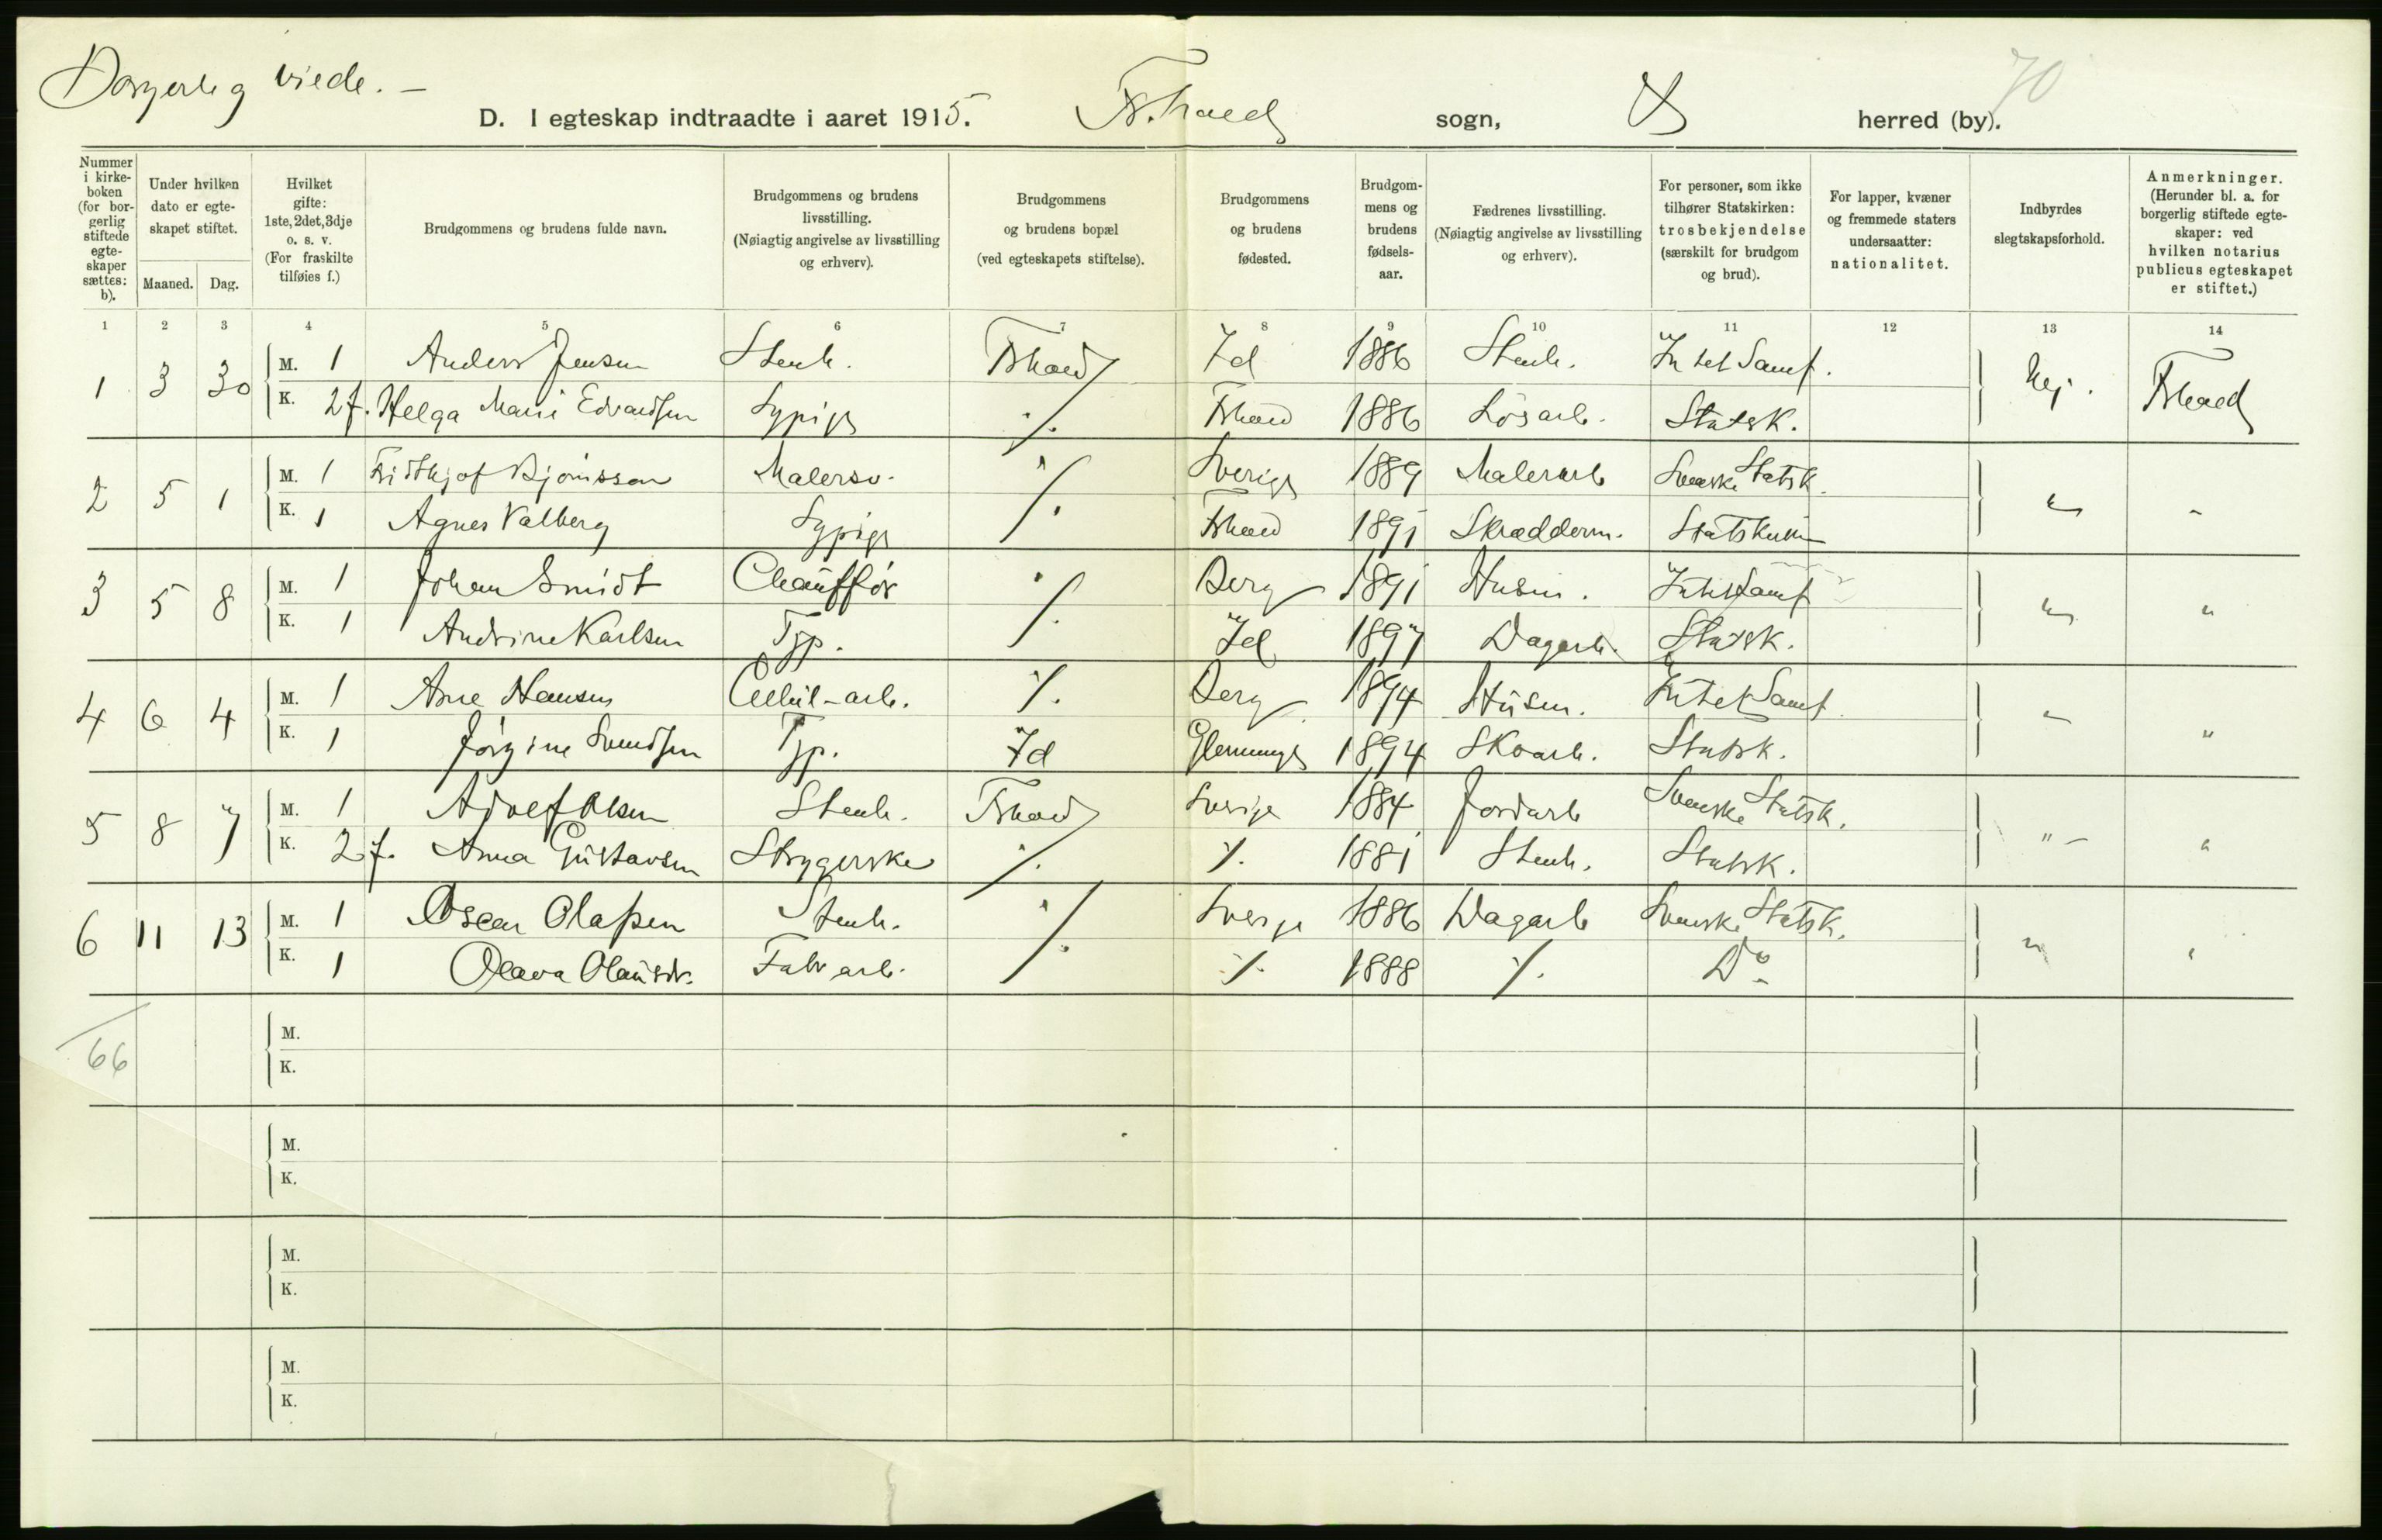 Borgerlig viede. –
70
D. I egteskap indtraadte i aaret 1915. Fr.hald sogn, herred (by).
Nummer i kirkeboken (for borgerlig stiftede egteskaper sættes: b).
Under hvilken dato er egteskapet stiftet.
Maaned. Dag.
Hvilket gifte: 1ste, 2det, 3dje o. s. v. (For fraskilte tilføies f.)
Brudgommens og brudens fulde navn.
Brudgommens og brudens livsstilling. (Nøiagtig angivelse av livsstilling og erhverv).
Brudgommens og brudens bopæl (ved egteskapets stiftelse).
Brudgommens og brudens fødested.
Brudgommens og brudens fødselsaar.
Fædrenes livsstilling. (Nøiagtig angivelse av livsstilling og erhverv).
For personer, som ikke tilhører Statskirken: trosbekjendelse (særskilt for brudgom og brud).
For lapper, kvæner og fremmede staters undersaatter: nationalitet.
Indbyrdes slegtskapsforhold.
Anmerkninger. (Herunder bl. a. for borgerlig stiftede egteskaper: ved hvilken notarius publicus egteskapet er stiftet.)
1 2 3 4 5 6 7 8 9 10 11 12 13 14
1 3 30 M. 1 Anders Jensen Stenh. Frhald Id 1886 Stenh. Intet Samf. Nej. Frhald
K. 2 f. Helga Marie Edvardsen Sypige ./. Frhald 1886 Løsarb. Statsk.
2 5 1 M. 1 Fridthjof Bjørnsson Malersv. ./. Sverige 1889 Malerarb Svenske Statsk. " "
K. 1 Agnes Valberg Sypige Frhald 1891 Skrædderm. Statskirken
3 5 8 M. 1 Johan Smidt Chauffør ./. Berg 1891 Husm. Intet Samf " "
K. 1 Andrine Karlsen Tjp. Id 1897 Dagarb. Statsk.
4 6 4 M. 1 Arne Hansen Cellul-arb. ./. Berg 1894 Husm. Intet Samf. " "
K. 1 Jørgine Svendsen Tjp. Id Glemminge 1894 Skoarb. Statsk.
5 8 7 M. 1 Adolf Olsen Stenh. Frhald Sverige 1884 Jordarb Svenske Statsk. " – "
K. 2 f. Anna Gustavsen Strygerske ./. ./. 1881 Stenh. Statsk.
6 11 13 M. 1 Oscar Olafsen Stenh. ./. Sverige 1886 Dagarb Svenske Statsk. " "
K. 1 Olava Olausdr. Fabr arb. ./. 1888 ./. Do
66
M.
K.
M.
K.
M.
K.
M.
K.